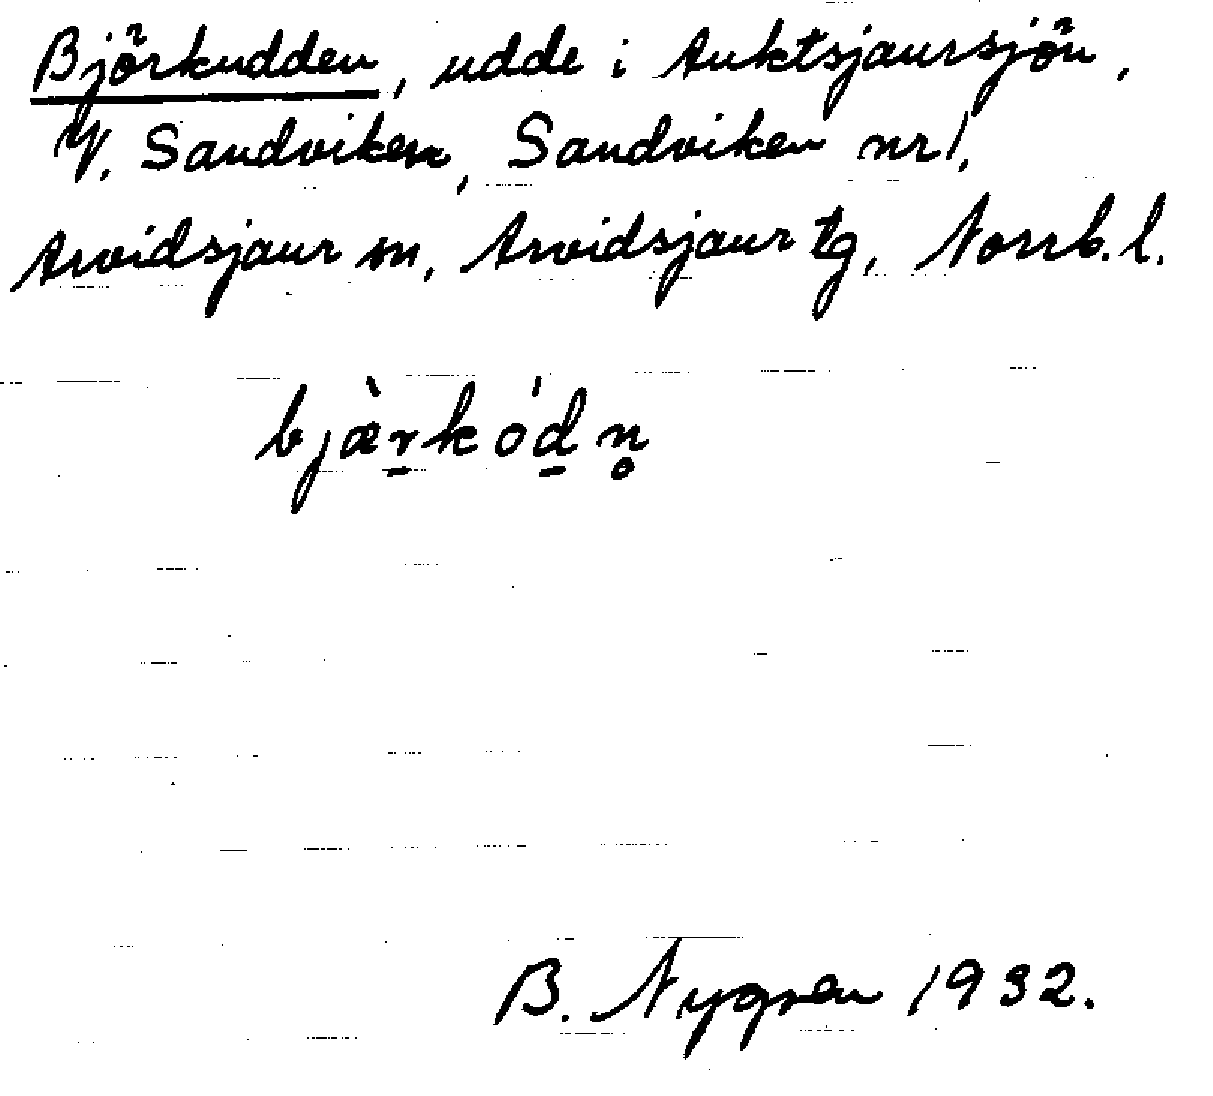 Björkudden, udde i Auktsjaursjön,
V. Sandviken, Sandviken nr 1,
Arvidsjaur sn, Arvidsjaur tg, Norrb. l.
bjæ̀r̠kód̠n̥
B. Nygren 1932.